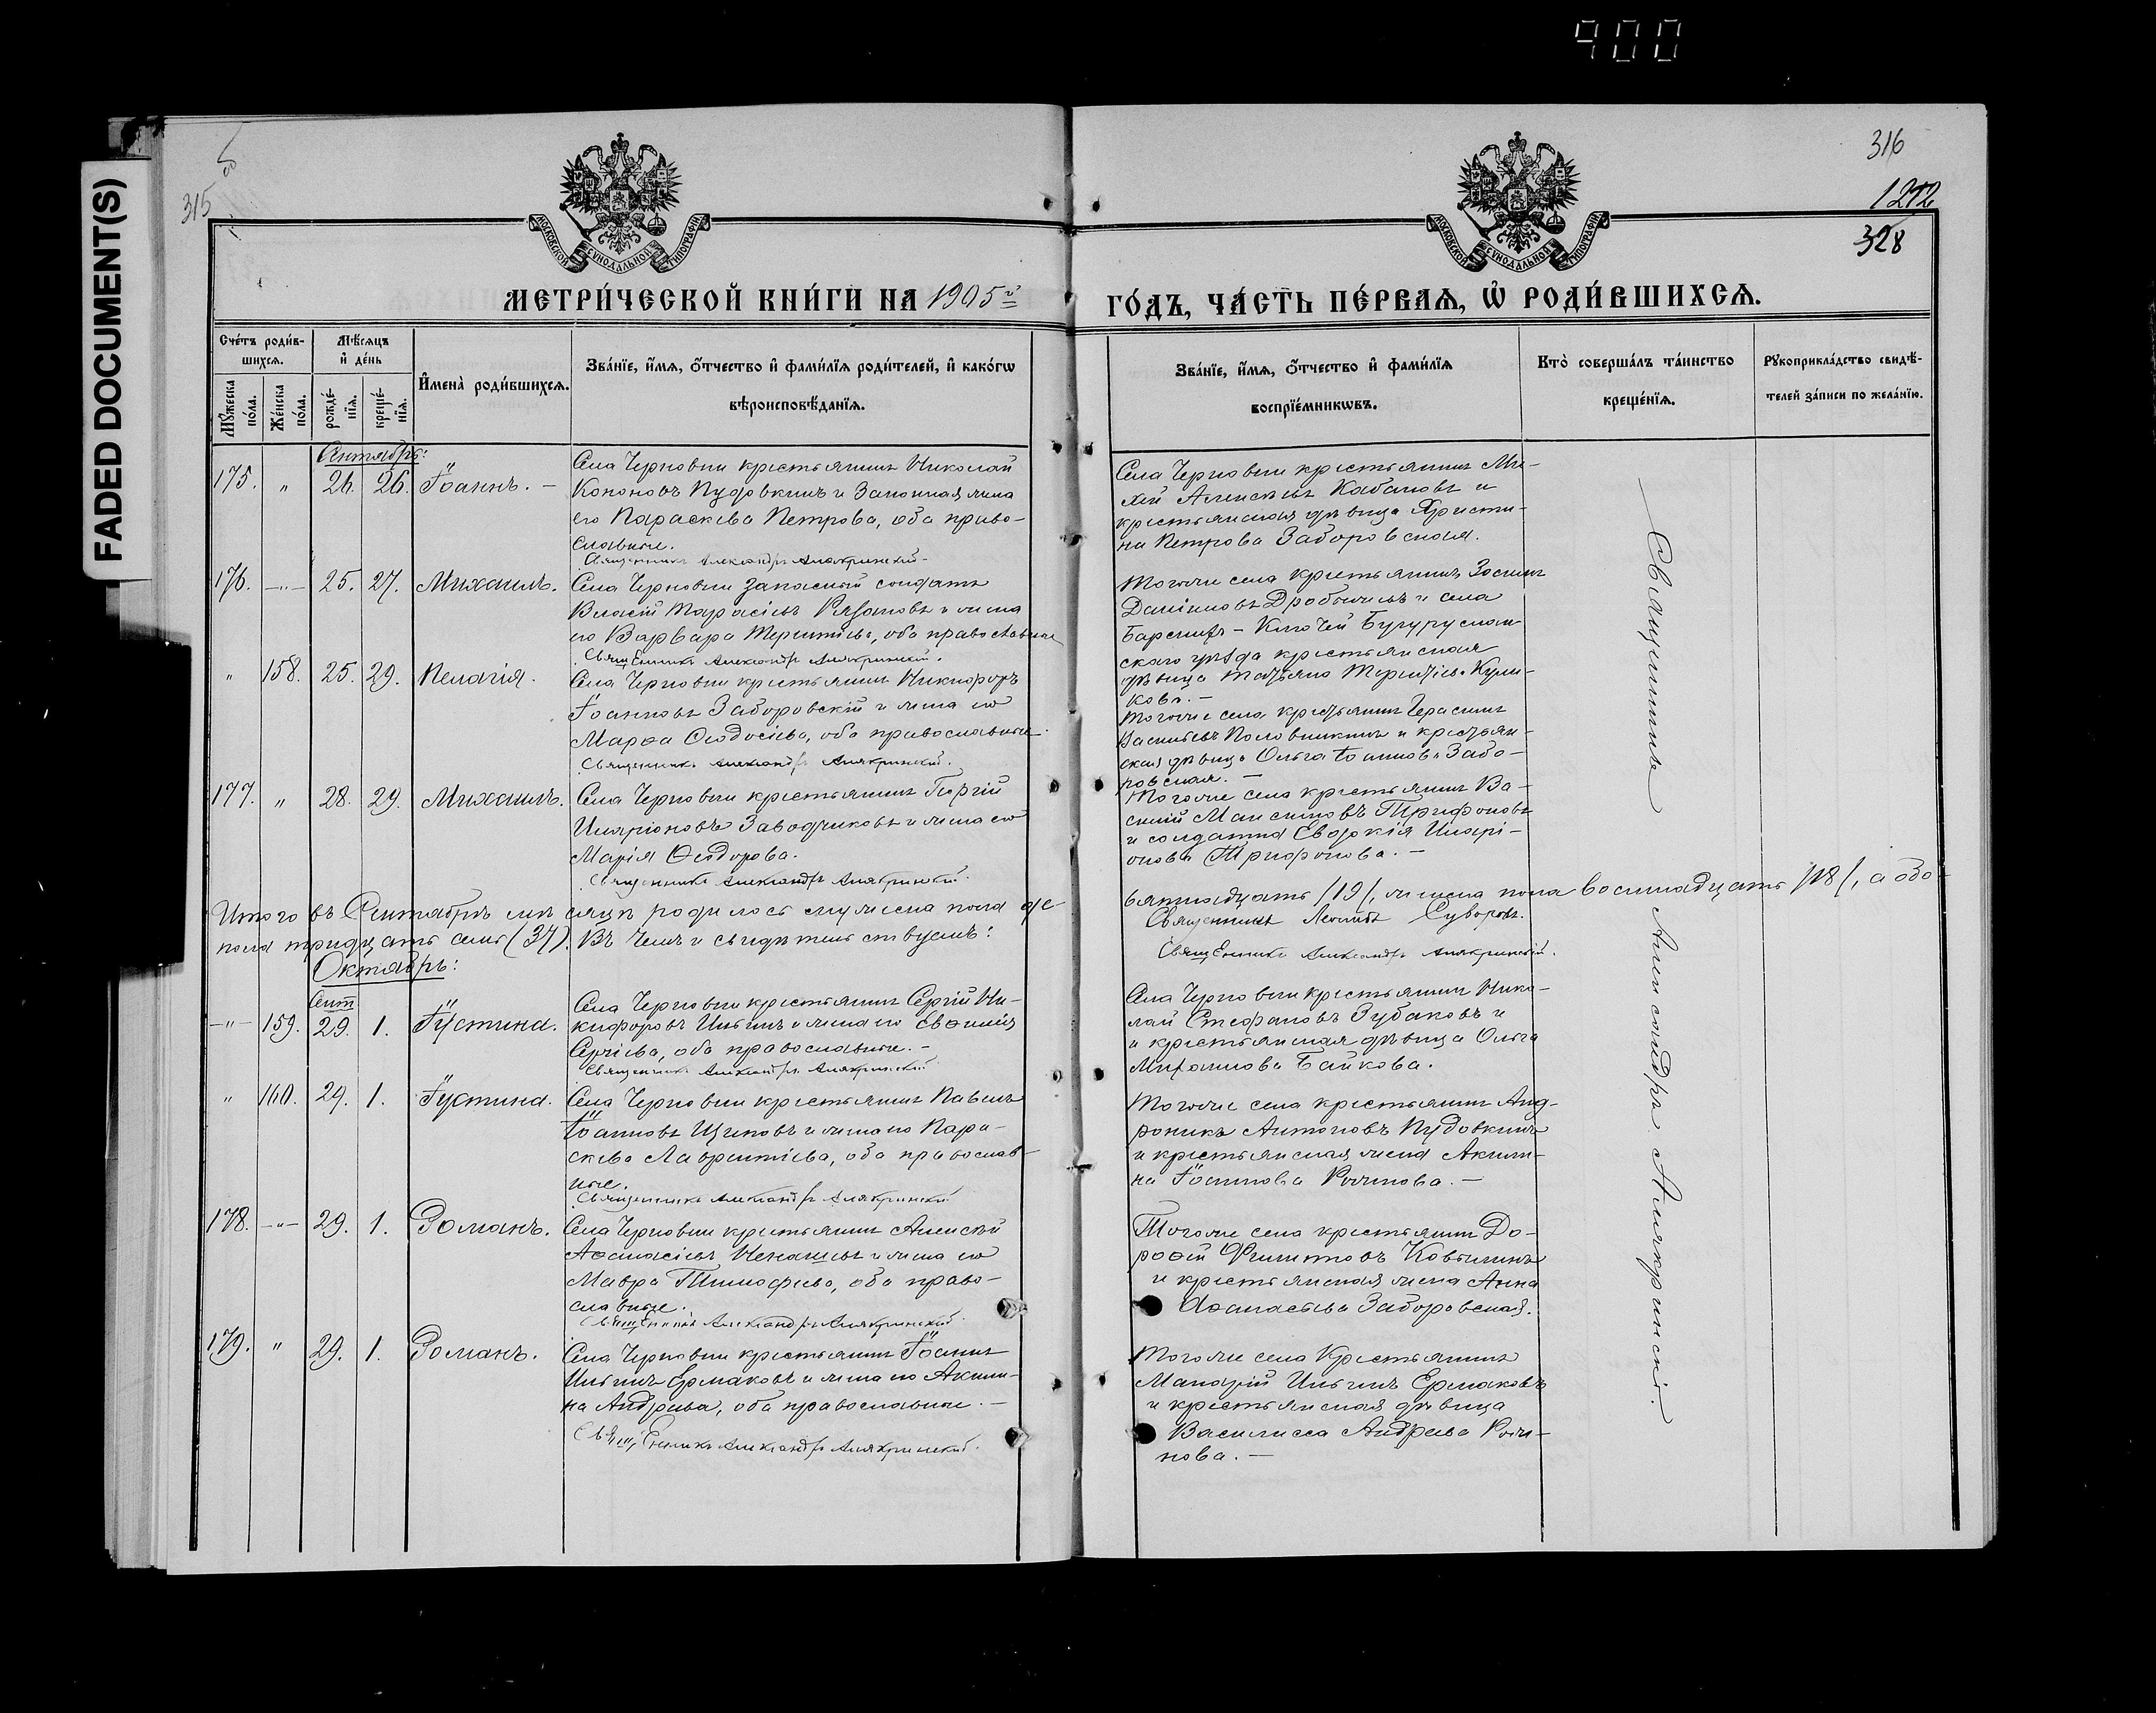 900
FADED DOCUMENT(S)
315
316
1212
328
МОСКОВСКОЙ СУНОДАЛЬНОЙ ТИПОГРАФІИ
МОСКОВСКОЙ СУНОДАЛЬНОЙ ТИПОГРАФІИ
МЕТРИ́ЧЕСКОЙ КНИ́ГИ НА 1905 й
ГО́ДЪ, ЧА́СТЬ ПЕ́РВАѦ, Ѡ҆ РОДИ́ВШИХСѦ.
Сче́тъ роди́в-
шихсѧ.
Мꙋ́жеска по́ла.
Же́нска по́ла.
Мѣ́сѧцъ
и҆ де́нь
рожде́-
нїѧ.
креще́-
нїѧ.
И҆мена̀ роди́вшихсѧ.
Зва́нїе, и҆́мѧ, ѻ҆́тчество и҆ фами́лїѧ роди́телей, и҆ како́гѡ
вѣроисповѣ́данїѧ.
Зва́нїе, и҆́мѧ, ѻ҆́тчество и҆ фами́лїѧ
воспрїе́мникѡвъ.
Кто̀ соверша́лъ та́инство
креще́нїѧ.
Рꙋкоприкла́дство свидѣ́-
телей за́писи по жела́нїю.
Сентябрь:
175. „ 26. 26. Іоаннъ. –
Села Черновки крестьянинъ Николай
Кононовъ Пудовкинъ и законная жена
его Параскева Петрова, оба право-
славные.
Священникъ Александръ Алякринскій.
Села Черновки крестьянинъ Ми-
хей Алексѣевъ Кабановъ и
крестьянская дѣвица Христи-
на Петрова Заборовская.
176. –„– 25. 27. Михаилъ.
Села Черновки запасный солдатъ
Власій Тарасіевъ Рязановъ и жена
его Варвара Терентіева, оба православные
Священникъ Александръ Алякринскій.
Тогоже села крестьянинъ Іосифъ
Даніиловъ и села
Ключей Бугуруслан-
скаго уѣзда крестьянская
дѣвица Татьяна Терентіева Кули-
кова. –
„ 158. 25. 29. Пелагія.
Села Черновки крестьянинъ Никифоръ
Іоанновъ Заборовскій и жена его
Марѳа Ѳеодосіева, оба православные.
Священникъ Александръ Алякринскій.
Тогоже села крестьянинъ Герасимъ
Васильевъ Половинкинъ и крестьян-
ская дѣвица Ольга Іоаннова Забо-
ровская. –
177. „ 28. 29. Михаилъ.
Села Черновки крестьянинъ Георгій
Иларіоновъ Заводчиковъ и жена его
Марія Ѳеодорова.
Священникъ Александръ Алякринскій.
Тогоже села крестьянинъ Ва-
силій Максимовъ Трифоновъ
и солдатка Евдокія Илларі-
онова Трифонова. –
Итого въ Сентябрѣ мѣсяцѣ родилось мужеска пола де-
вятнадцать /19/, женска пола восемнадцать /18/, а обо-
пола тридцать семь (37). Въ чемъ и свидѣтельствуемъ:
Священникъ Леонидъ Суворовъ.
Священникъ Александръ Алякринскій.
Октябрь:
Сент
–„– 159. 29. 1. Іустина.
Села Черновки крестьянинъ Сергій Ни-
кифоровъ Ильинъ и жена его Евѳимія
Сергіева, оба православные. –
Священникъ Александръ Алякринскій
Села Черновки крестьянинъ Нико-
лай Стефановъ Зубаковъ и
и крестьянская дѣвица Ольга
Михаилова Байкова.
„ 160. 29. 1. Іустина.
Села Черновки крестьянинъ Павелъ
Іоанновъ Щиновъ и жена его Пара-
скева Лаврентіева, оба православ-
ные.
Священникъ Александръ Алякринскій
Тогоже села крестьянинъ Анд-
роникъ Антоновъ Пудовкинъ
и крестьянская жена Акили-
на Іоаннова –
178. –„– 29. 1. Романъ.
Села Черновки крестьянинъ Алексѣй
Аѳанасіевъ и жена его
Мавра Тимофеева, оба право-
славные.
Священникъ Александръ Алякринскій.
Тогоже села крестьянинъ До-
роѳей Филипповъ Ковылинъ
и крестьянская жена Анна
Аѳанасьева Заборовская.
179. „ 29. 1. Романъ.
Села Черновки крестьянинъ Іоаннъ
Ильинъ Ермаковъ и жена его Акили-
на Андреева, оба православные. –
Священникъ Александръ Алякринскій.
Тогоже села крестьянинъ
Макарій Ильинъ Ермаковъ
и крестьянская дѣвица
Василисса Андреева
нова. –
Священникъ Александръ Алякринскій.